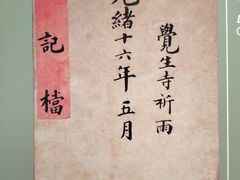 覺生寺祈雨
光緒十六年五月
記檔